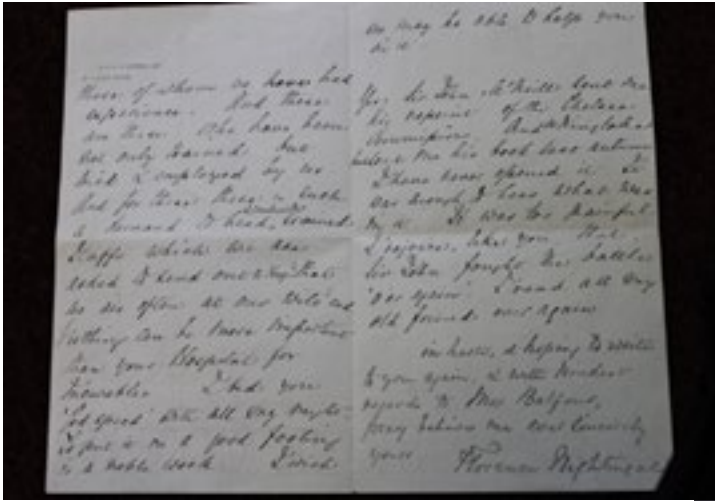 those of whom we have had
experience. And these
are those who have been
not only trained but
tried & employed by us
And for these there is such
a demand to head trained
Staffs which we are
asked to send out that
we are often at our wits' end
Nothing can be more important
than your Hospital for
Incurables I bid you
'God speed' with all my might
to put it on a good footing
is a noble work I wish
we may be able to help you
in it
Yes, Sir John McNeill sent me
his reprint of the Chelsea
Commission. And Kinglake
his book last autumn
I have never opened it
enough, I hear what was
in it It was too painful
I rejoice, like you that
Sir John fought the battle
o'er again I read all my
old friends over again
in haste, & hoping to write
to you again, & with kindest
regards to Mrs Balfour,
pray believe me ever sincerely
yours Florence Nightingale